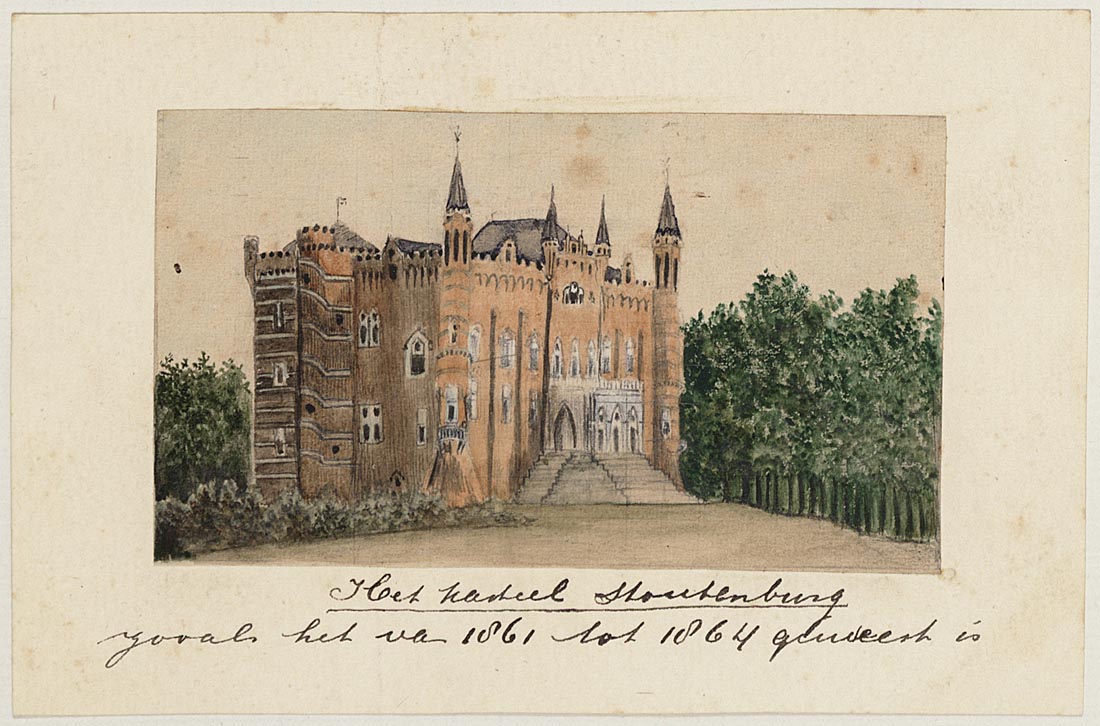 Het kasteel Stoutenburg
zooals het va 1861 tot 1864 geweest is